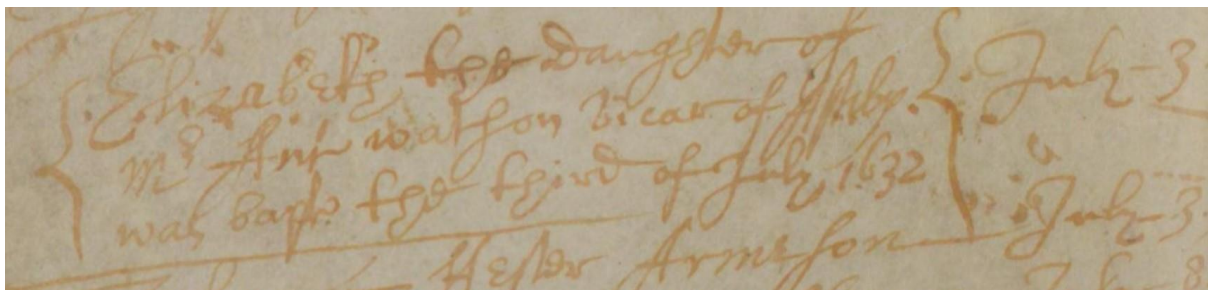 Elizabeth the daughter of
Mr Ant wathson Vicar of
was bapt the third of July 1632
July-3
July-3
Hester